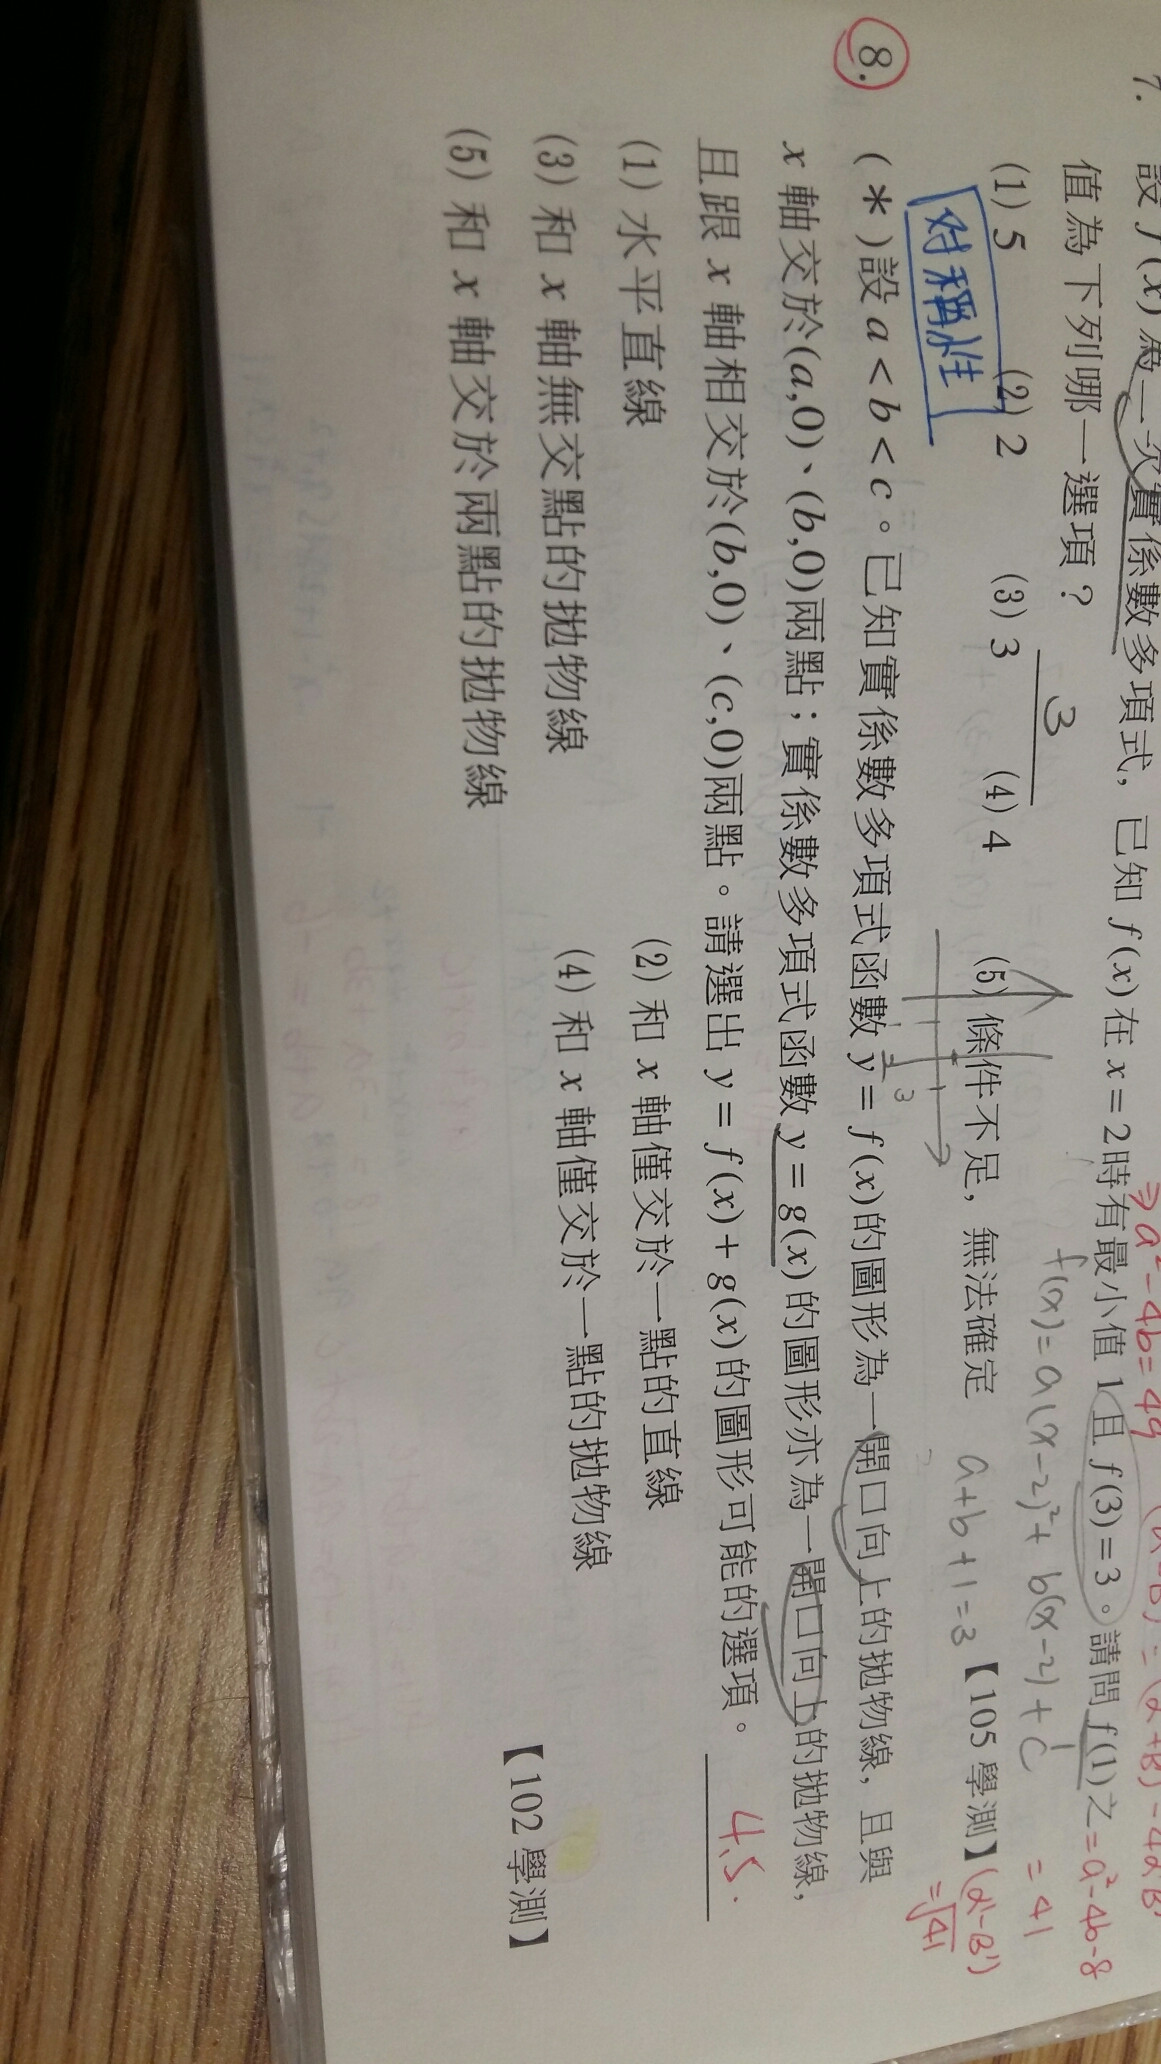 7. 設 f(x) 為一次實係數多項式, 已知 f(x) 在 x = 2 時有最小值 1 且 f(3) = 3。請問 f(1) 之
值為下列哪一選項？ 3
f(x) = a(x-2)² + b(x-2) + c
(1) 5 (2) 2 (3) 3 (4) 4 (5) 條件不足, 無法確定 a+b+1=3 【105 學測】
⇒a²-4b=49
=a²-4b-8
=41
(α'-β')
=√41
對稱性
8. (＊)設 a < b < c。已知實係數多項式函數 y = f(x) 的圖形為一開口向上的拋物線, 且與
x 軸交於(a,0)、(b,0)兩點；實係數多項式函數 y = g(x) 的圖形亦為一開口向上的拋物線,
且跟 x 軸相交於(b,0)、(c,0)兩點。請選出 y = f(x) + g(x) 的圖形可能的選項。 4.5.
(1) 水平直線 (2) 和 x 軸僅交於一點的直線
(3) 和 x 軸無交點的拋物線 (4) 和 x 軸僅交於一點的拋物線
(5) 和 x 軸交於兩點的拋物線 【102 學測】